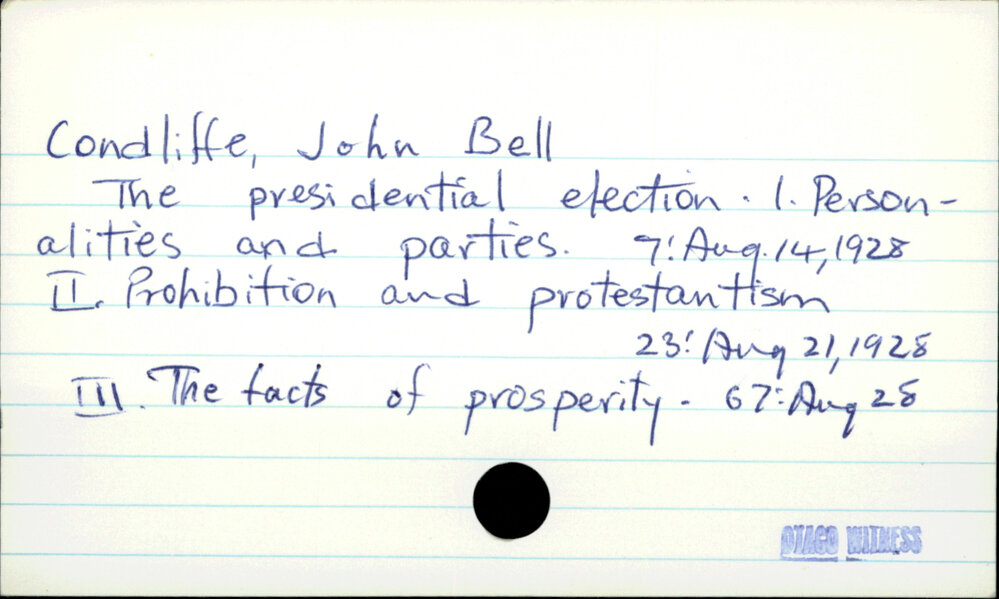 Condliffe, John Bell
The presidential election. 1. Person-
alities and parties. 7: Aug. 14, 1928
II. Prohibition and protestantism
23: Aug 21, 1928
III. The facts of prosperity. 67: Aug 28
OTAGO WITNESS